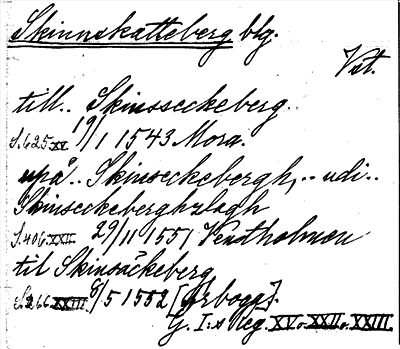 Skinnskatteberg blg.
Vst.
till.. Skinsseckeberg..
S. 625 XV. 19/1 1543 Mora.
upå.. Skinseckebergh,.. udi..
Skinseckeberghzlagh
S. 406 XXII. 29/11 1551 Ventholmen
til Skinsäckeberg
S. 266 XXIII. 8/5 1552 [Örboga].
G. I:s Reg. XV o. XXII o. XXIII.